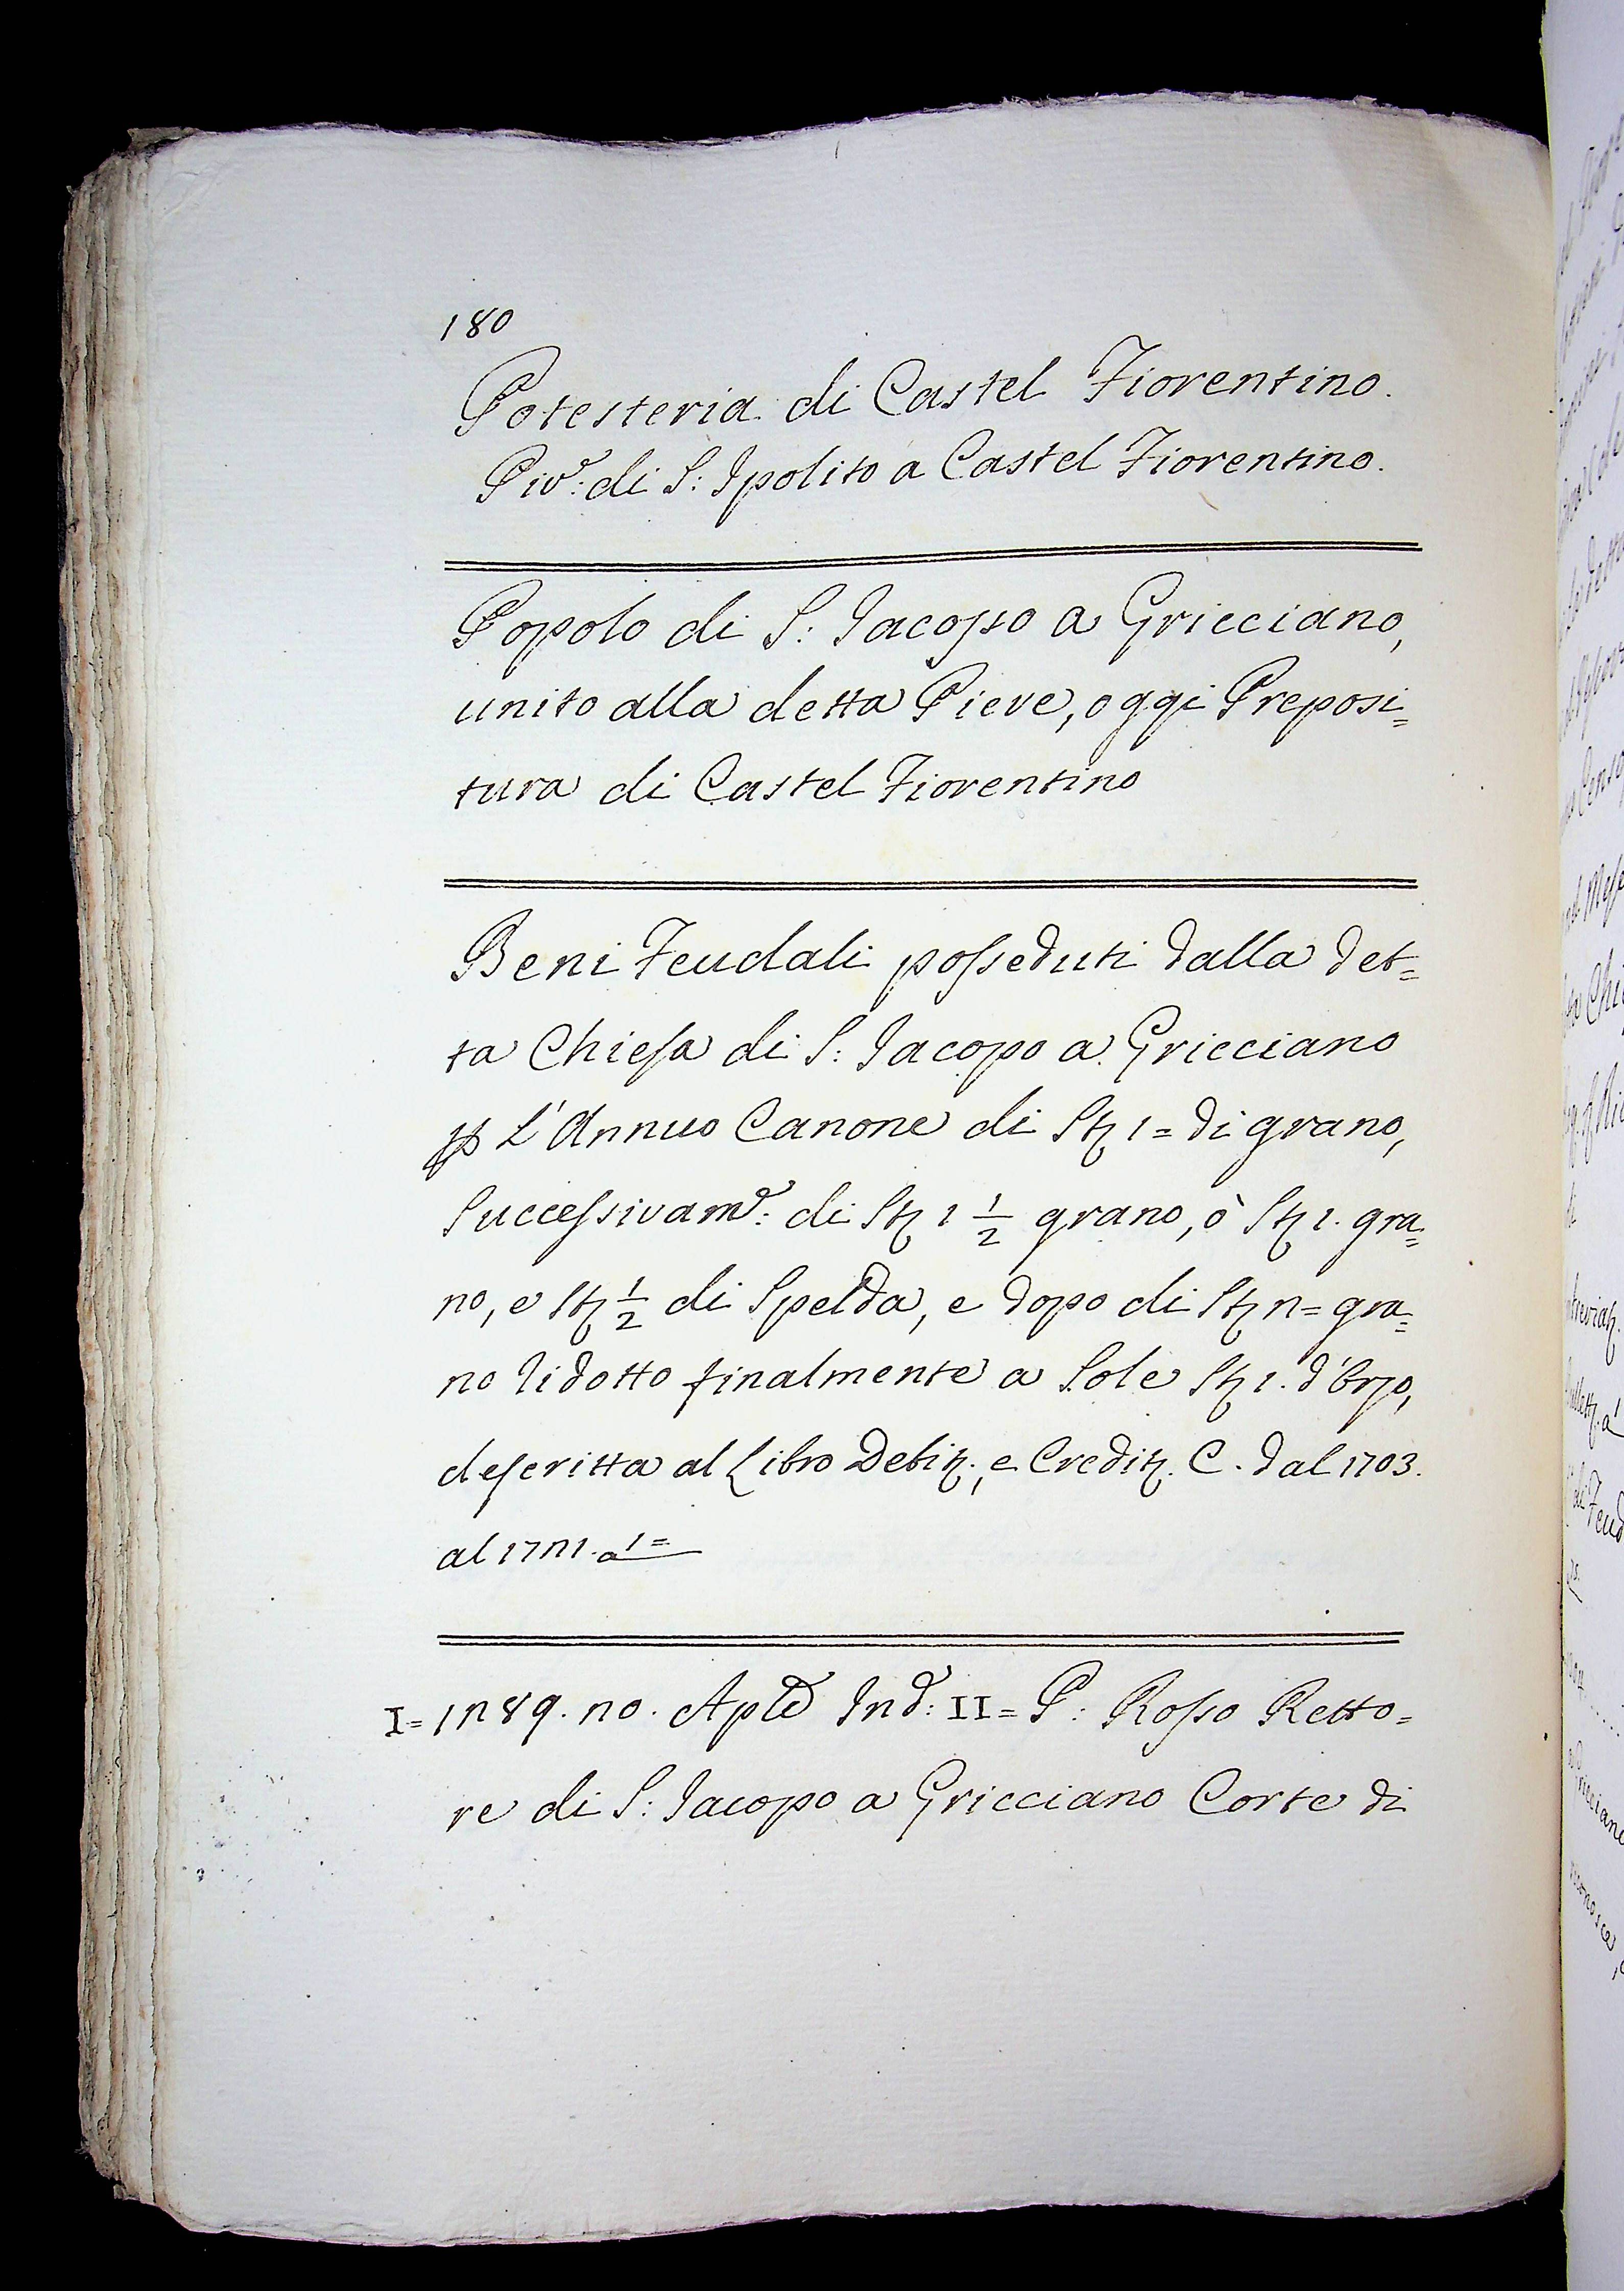 180
Potesteria di Castel Fiorentino.
Piv.e: di S: Ipolito a Castel Fiorentino.
Popolo di S: Iacopo a Gricciano,
unito alla detta Pieve, oggi Preposi=
tura di Castel Fiorentino
Beni Feudali posseduti dalla det=
ta Chiesa di S: Iacopo a Gricciano
p L'Annuo Canone di St 1= di grano,
Successivam.e: di St 1 1/2 grano, ò St 1. gra=
no, e St 1/2 di Spelda, e dopo di St 2= gra=
no ridotto finalmente a Sole St 1. d'Orzo,
descritta al Libro Debit., e Credit. C. dal 1703.
al 1721. a 1=
I= 1289. 20. Aple Ind: II= P: Rosso Retto=
re di S: Iacopo a Gricciano Corte di